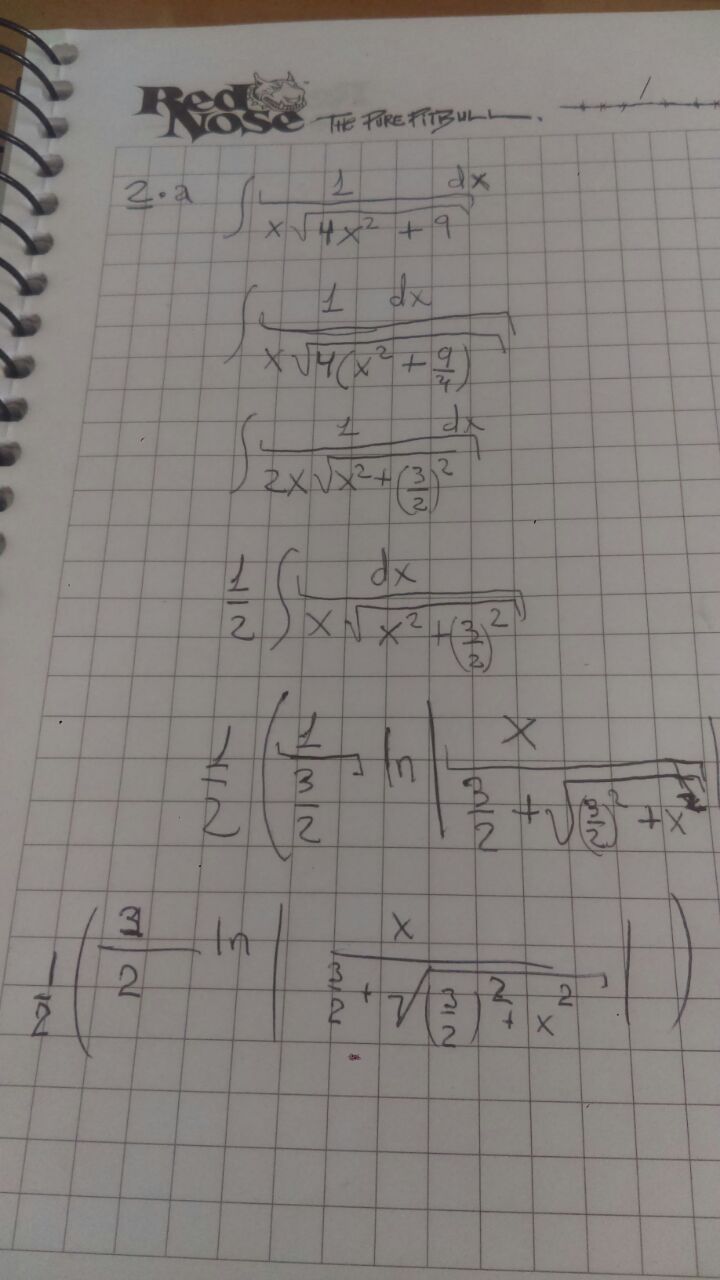 Red Nose THE PURE PITBULL
2.a ∫ 1 dx / (x√(4x² + 9))
∫ 1 dx / (x√(4(x² + 9/4)))
∫ 1 dx / (2x√(x² + (3/2)²))
1/2 ∫ dx / (x√(x² + (3/2)²))
1/2 ( 1/(3/2) ln | x / (3/2 + √((3/2)² + x²)) |
1/2 ( 3/2 ln | x / (3/2 + √((3/2)² + x²)) | )